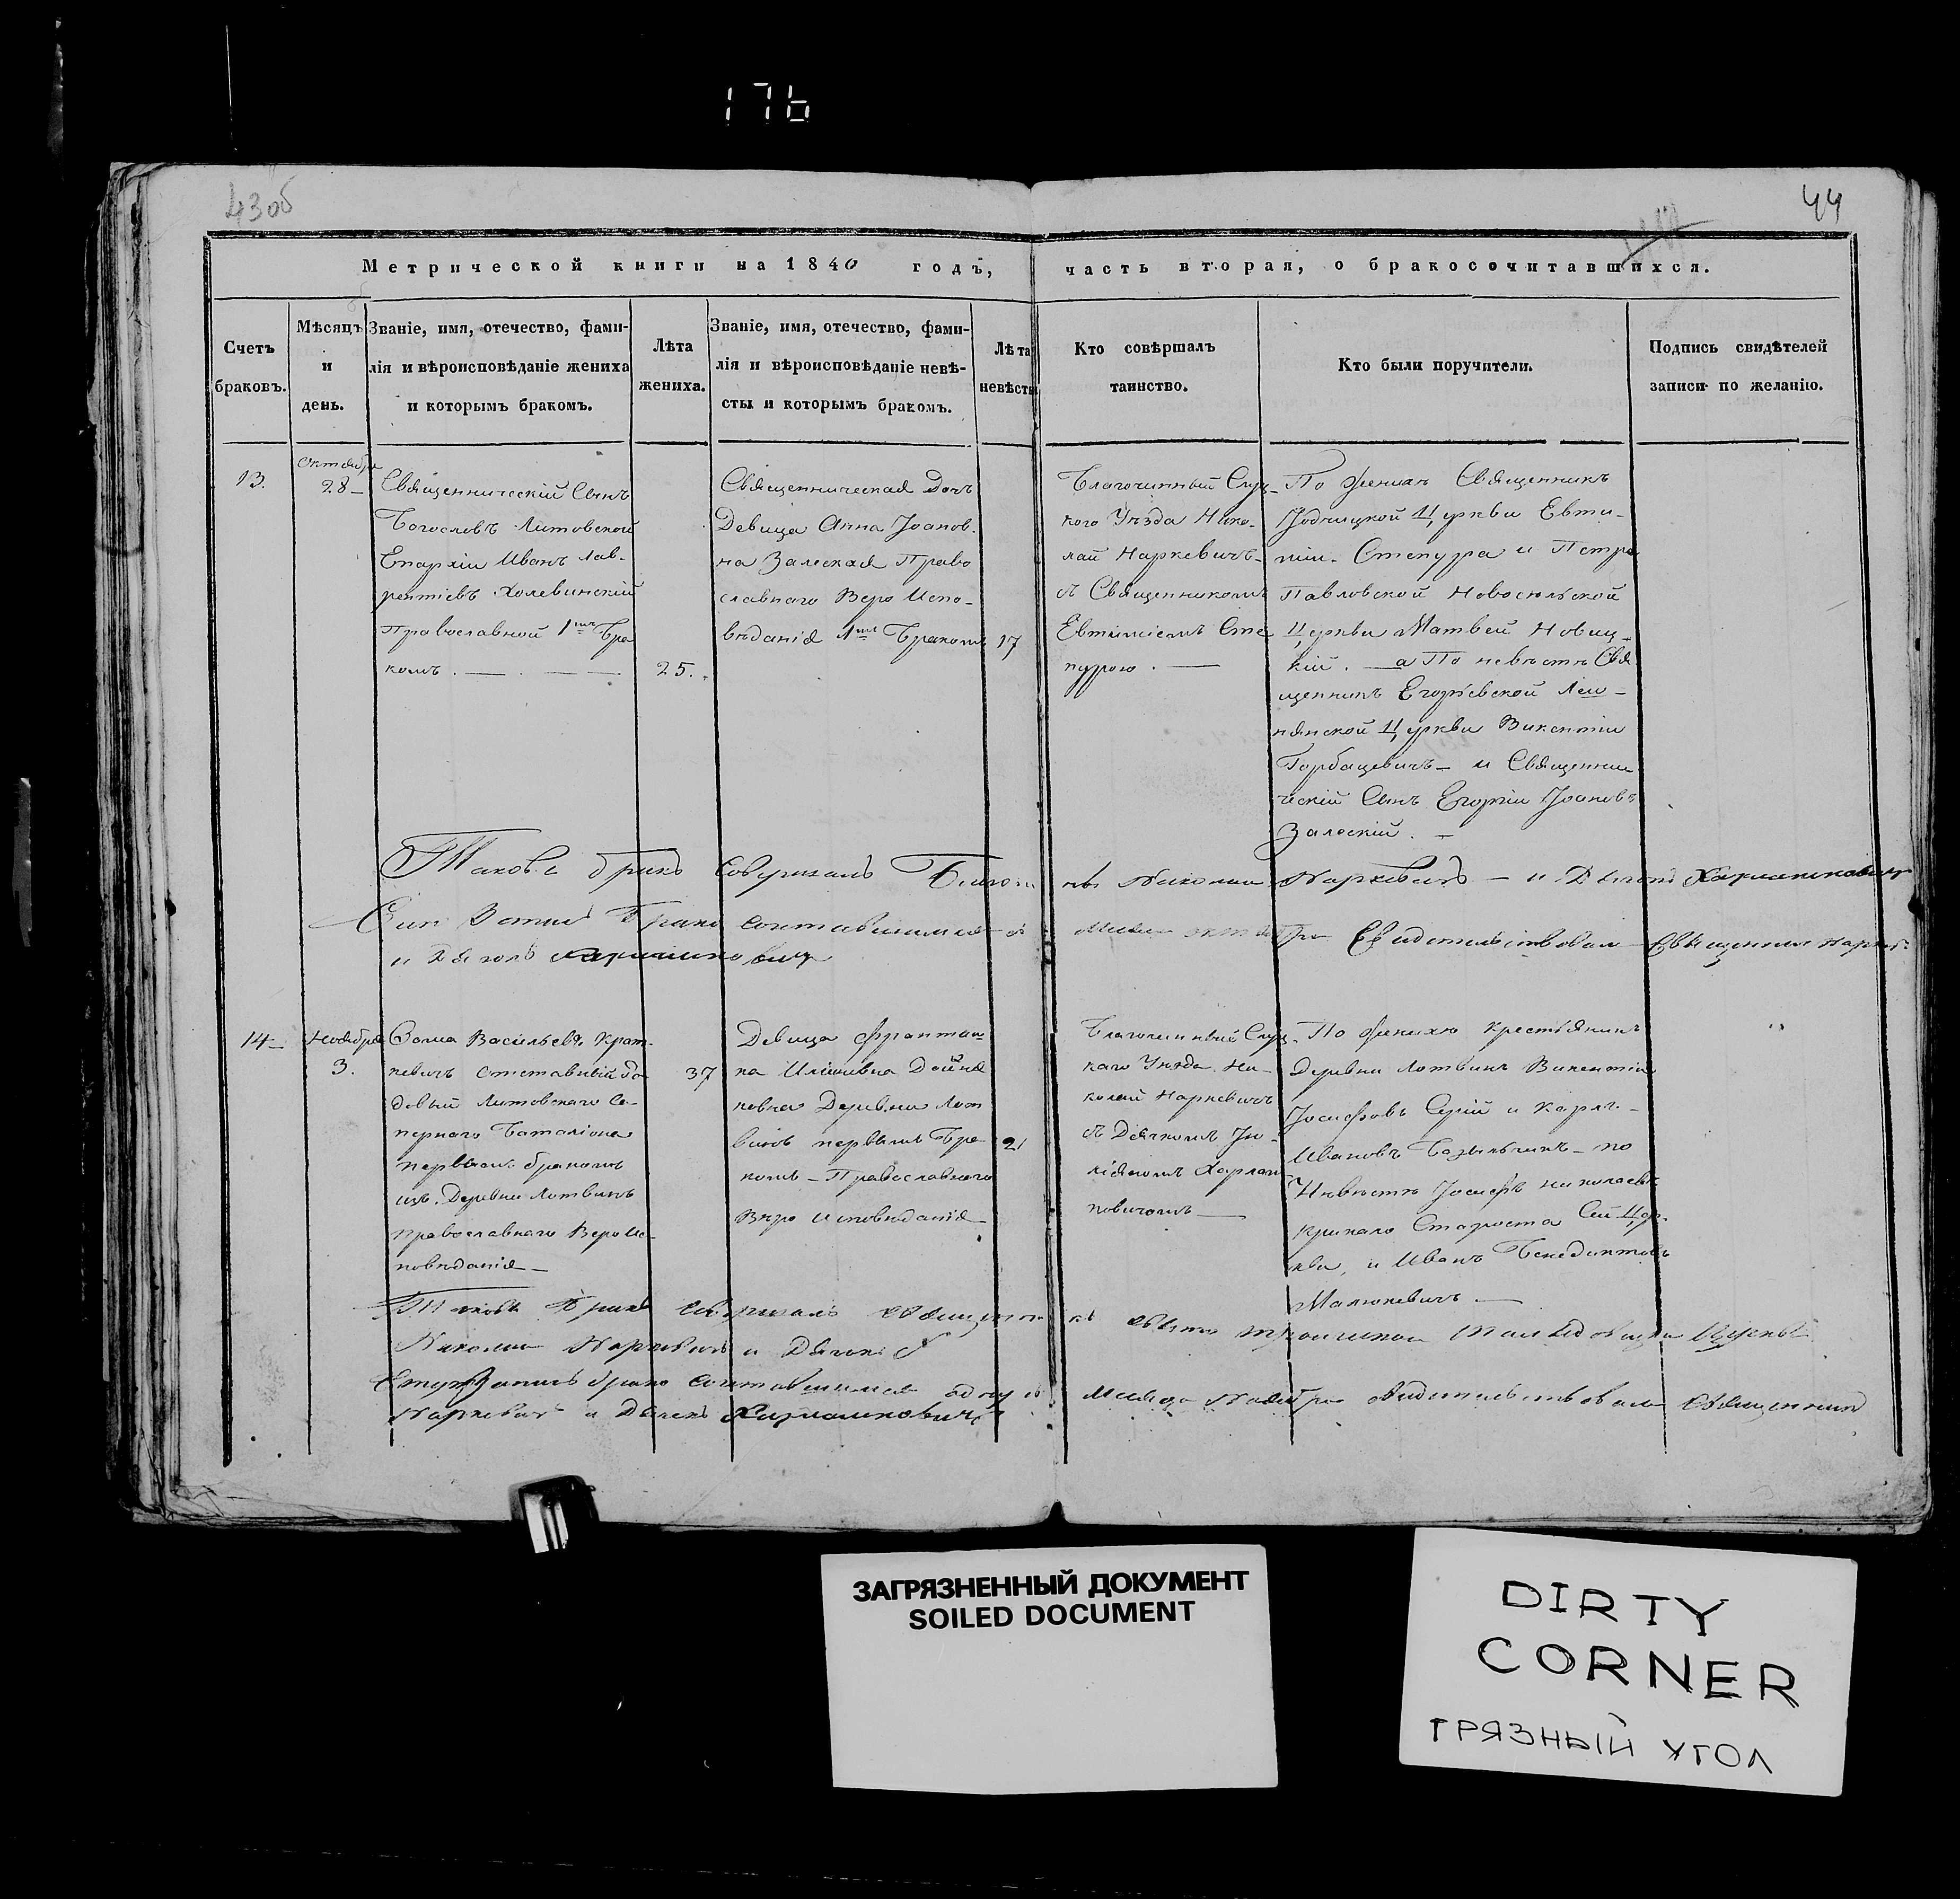 176
43об
44
Метрической книги на 1840 годъ, часть вторая, о бракосочитавшихся.
Счетъ браковъ.
Мѣсяцъ и день.
Званіе, имя, отечество, фами-
лія и вѣроисповѣданіе жениха
и которымъ бракомъ.
Лѣта
жениха.
Званіе, имя, отечество, фами-
лія и вѣроисповѣданіе невѣ-
сты и которымъ бракомъ.
Лѣта
невѣсты
Кто совѣршалъ
таинство.
Кто были поручители.
Подпись свидѣтелей
записи по желанію.
13.
Октября
28
Священническій Сынъ
Богословъ Литовской
Епархіи Иванъ Лав-
рентіевъ Холевинскій
Православной 1мъ Бра
комъ.
25.
Священническая Дочь
Девица Анна Іоанов.
на Залеская Право
славнаго Веро Испо-
вѣданія 1мъ Бракомъ
17
Благочинный Слуц-
каго Уѣзда Нико-
лай Наркевичъ
съ Священникомъ
Евтиміемъ Сте
пурою.
По Женихѣ Священникъ
Церкви Евти-
мій Степура и Петро
Павловской Новосельской
Церкви Матвей Новиц-
кій. а По невѣстѣ Свя
щенникъ Егоріевской Леш-
нянской Церкви Викентій
Горбацевичъ и Священни-
ческій Сынъ Егорій Іоановъ
Залескій.
Таковъ бракъ Совершалъ Николай Наркевичъ и Дьячокъ Харлампковичъ
Сію Запись Брако сочтавшимся Месяц октября Свидетельствовали Священникъ
и Дьячокъ
14
Ноября
3.
Фома Васильевъ Крат-
кевичъ отставный Ря
довый Литовскаго Са-
пернаго Баталіона
первымъ бракомъ
изъ Деревни Лотвинъ
православнаго Веро Ис-
повѣданія
37
Девица
на Деревни Лот
винъ первымъ Бра
комъ Православнаго
Вѣро исповѣданія
21
Благочинный Слуц-
каго Уѣзда Ни-
колай Наркевичъ
съ Дьячкомъ Iу-
ліяномъ Харлам-
повичомъ
По Женихѣ Крестьянинъ
Деревни Лотвинъ Викентій
Іосифовъ и Карлъ
Ивановъ по
Невѣстѣ Іосифъ Николаевъ
Староста Сей Цер-
кви, и Иванъ Бенедиктовъ
Малюкевичъ
Таковъ Бракъ Совершалъ Священникъ Церкви
Николай Наркевичъ и Дьячокъ
Запись брако сочтавшимся Месяца Ноября свидетельствовали Священникъ
Наркевичъ и Дьячокъ
ЗАГРЯЗНЕННЫЙ ДОКУМЕНТ
SOILED DOCUMENT
DIRTY
CORNER
ГРЯЗНЫЙ УГОЛ